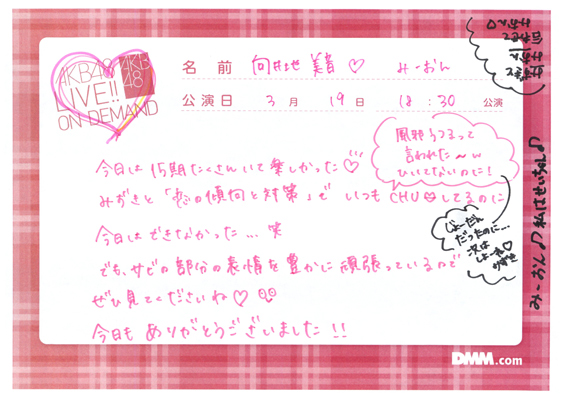 AKB48
LIVE!!
ON DEMAND
AKB
48
名 前 向井地 美音♡ みーおん
公演日 3 月 19 日 18 : 30 公演
今日は15期たくさんいて楽しかった♡
みずきと「恋の傾向と対策」で いつもCHUしてるのに
今日はできなかった... 笑
でも、サビの部分の表情を豊かに頑張っているので
ぜひ見てくださいね♡
今日も ありがとうございました!!
風邪うつるって
言われた〜w
ひいてないのに!
じょーだん
だったのに...
次は
しよーね♡
みずき
みーおん♪私はせいちゃん♪
DMM.com